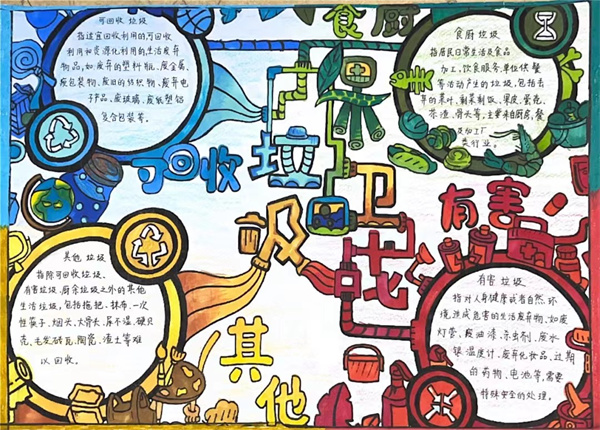 可回收 垃圾
指适宜回收利用的可回收
利用和资源化利用的生活废弃
物品,如:废弃的塑料瓶、废金属、
废包装物、废旧的纺织物、废弃电
子产品、废玻璃、废纸塑铝
复合包装等。
食厨
食厨垃圾
指居民日常生活及食品
加工、饮食服务、单位供餐
等活动产生的垃圾,包括丢
弃的菜叶、剩菜剩饭、果皮、蛋壳、
茶渣、骨头等,主要来自厨房、餐
及加工厂
类行业。
可回收
垃圾保卫战
有害
其他 垃圾
指除可回收垃圾、
有害垃圾、厨余垃圾之外的其他
生活垃圾,包括拖把、抹布、一次
性筷子、烟头、大骨头、尿不湿、硬贝
壳、毛发砖瓦、陶瓷、渣土等难
以回收。
其他
有害 垃圾
指对人身健康或者自然环
境造成危害的生活废弃物,如废
灯管、废油漆、杀虫剂、废水
银温度计、废弃化妆品、过期
的药物、电池等,需要
特殊安全的处理。